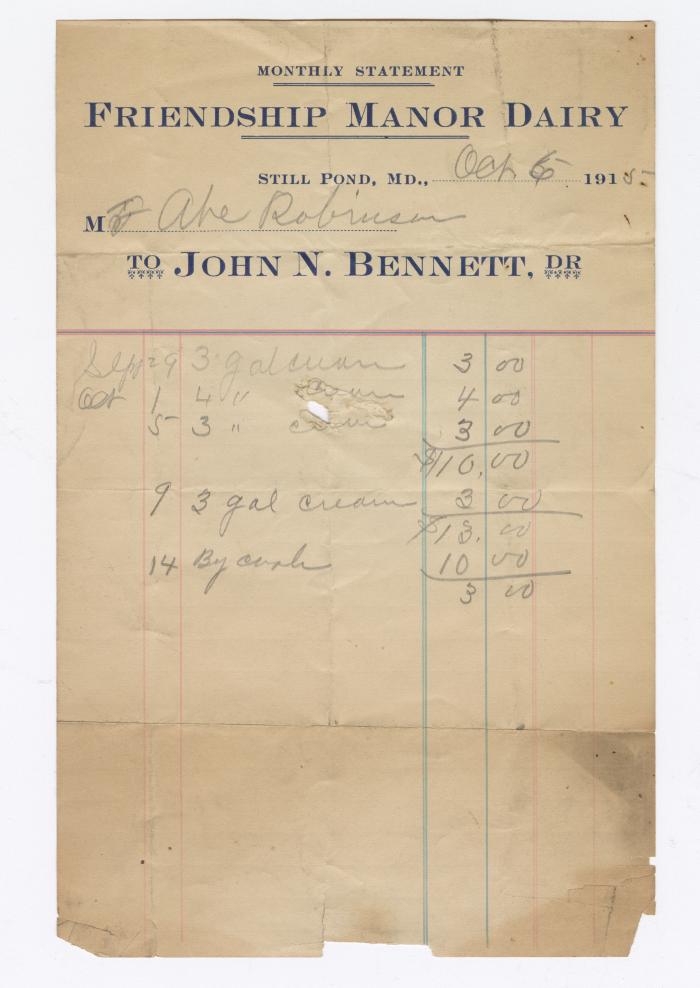 MONTHLY STATEMENT
FRIENDSHIP MANOR DAIRY
STILL POND, MD., Oct 6 1915
Mr Abe Robinson
TO JOHN N. BENNETT, DR
Sept 29 3 gal cream 3 00
Oct 1 4 " cream 4 00
5 3 " cream 3 00
$10.00
9 3 gal cream 3 00
$13.00
14 By cash 10 00
3 00